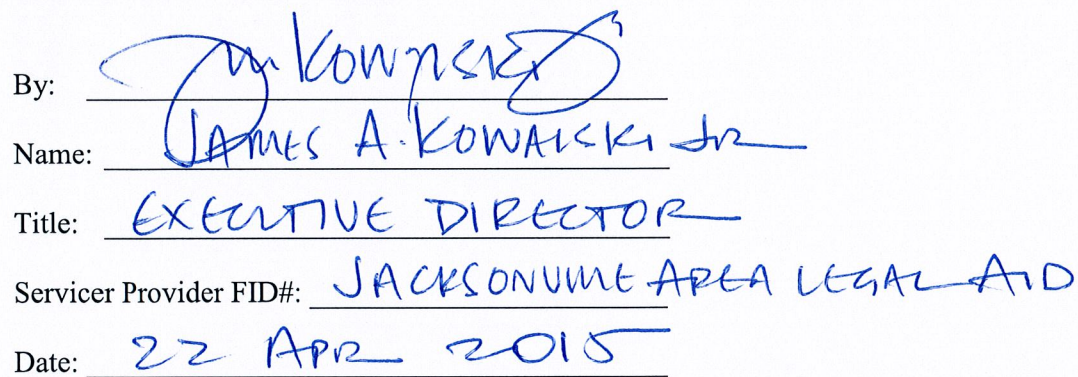 By: Jm. Kowalski
Name: JAMES A. KOWALSKI JR
Title: EXECUTIVE DIRECTOR
Servicer Provider FID#: JACKSONVILLE AREA LEGAL AID
Date: 22 APR 2015